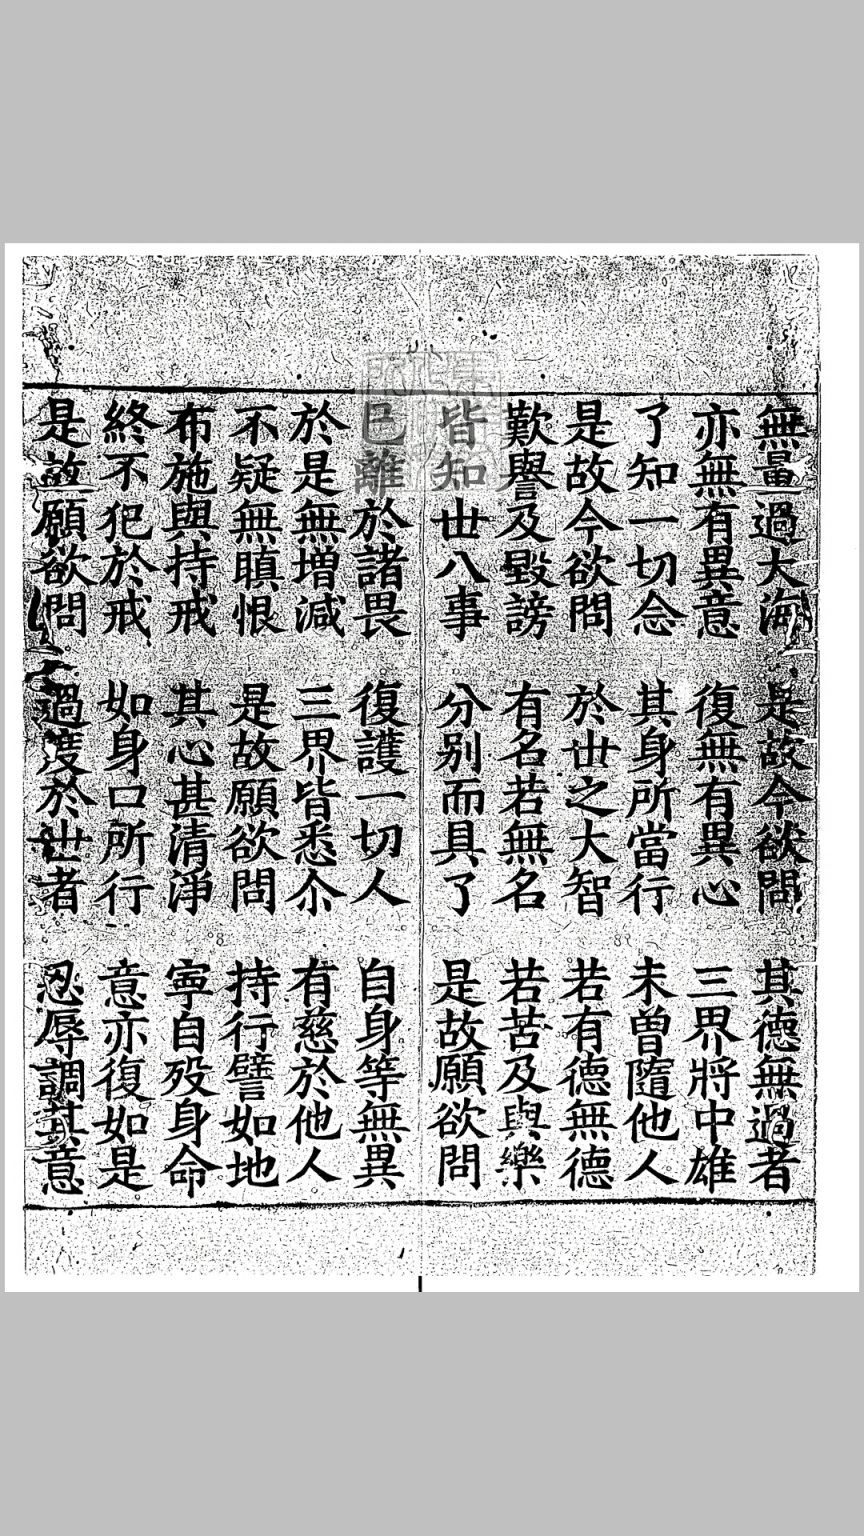 無量過大海 是故今欲問 其德無過者
亦無有異意 復無有異心 三界將中雄
了知一切念 其身所當行 未曾隨他人
是故今欲問 於世之大智 若有德無德
歎譽及毀謗 有名若無名 若苦及與樂
皆知世八事 分別而具了 是故願欲問
已離於諸畏 復護一切人 自身等無異
於是無增減 三界皆悉尒 有慈於他人
不疑無瞋恨 是故願欲問 持行譬如地
布施與持戒 其心甚清淨 寧自歿身命
終不犯於戒 如身口所行 意亦復如是
是故願欲問 過度於世者 忍辱調其意